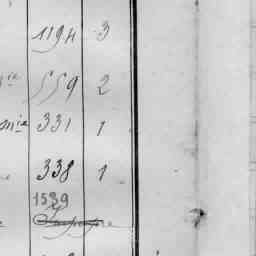 1194 3
559 2
331 1
338 1
1539